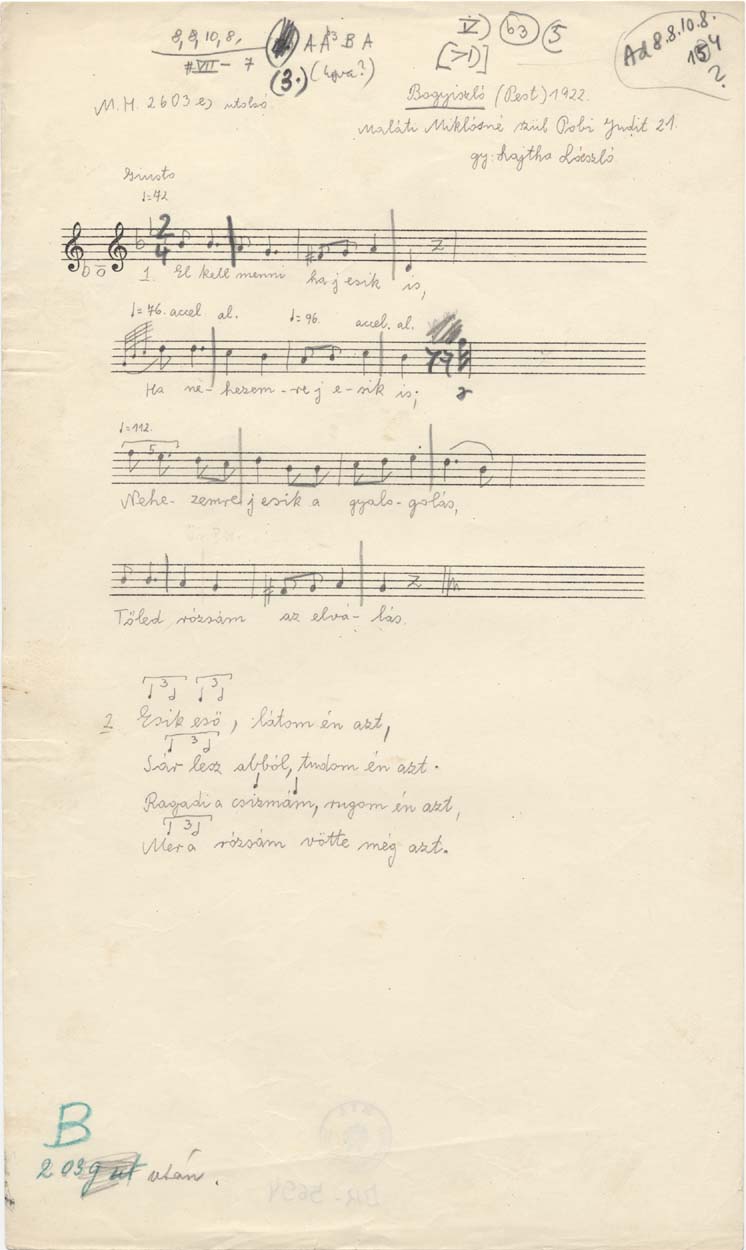 8, 8, 10, 8,
#VII – 7
(3.)
A A³ B A
V) (b3) (5
[>1)]
Ad 8.8.10.8.
154
?
M.H. 2603 e) utolsó.
Bogyiszló (Pest) 1922.
Maláti Miklósné szül Pobi Judit 21.
gy: Lajtha László
Giusto
♩=72
1. El kell menni ha j esik is,
♩=76. accel. al. ♩=96. accel. al.
Ha ne-hezem-re j e-sik is;
♩=112.
5
Nehe-zemre j esik a gyalo-golás,
Tőled rózsám az elvá-lás.
3 3
2. Esik eső, látom én azt,
3
Sár lesz abból, tudom én azt.
Ragadi a csizmám, rugom én azt,
3
Mer a rózsám vötte még azt.
B
után.